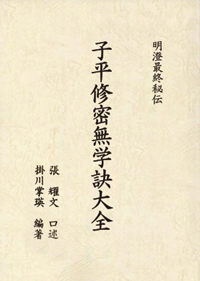 明澄最終秘伝
子平修密無学訣大全
張耀文 口述
掛川掌瑛 編著